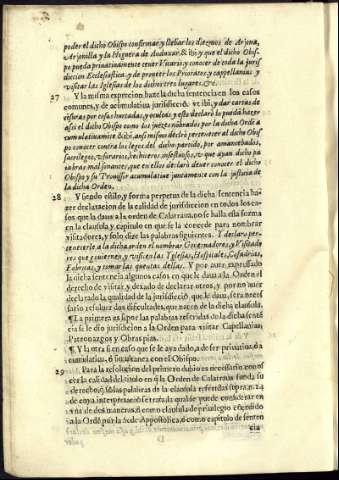 poder el dicho Obispo confirmar, y llebar los diezmos de Arjona,
Arjonilla y la Higuera de Anduxar & ibi, y que el dicho Obis-
po pueda privatiuamente tener Vicario, y conocer de toda la juris
dicion Ecclesiastica, y de proueer los Prioratos, y cappellanias y
visitar las Iglesias de los dichos tres lugares, &c.
27 Y la misma exprecion haze la dicha sentencia en los casos
comunes, y de acumulatiua jurisdició & vt ibi, y dar cartas de
césuras por cosas hurtadas, y ocultas, y esto declaró lo puedā hazer
assi el dicho Obispo como los juezes nōbrados por la dicha Ordē a
cumulatiuamente & ibi, ansi mismo declaró pertenecer al dicho Obis
po conocer contra los legos del dicho partido, por amancebados,
sacrilegos, vsurarios, hechizeros, incestuosos, & que ayan dicho pa
labras mal sonantes, que en ellos declaró deuer conocer el dicho
Obispo y su Prouisor acumulatiue juntamente con la justicia de
la dicha Orden.
28 Y siendo estilo, y forma perpetua de la dicha sentencia ha-
zer declaracion de la calidad de jurisdiccion en todos los ca-
sos que la daua a la orden de Calatraua, no se halla esta forma
en la clausula, y capitulo en que se la concede para nombrar
visitadores, y solo dize las palabras siguientes. Y declaro per-
tenecerle a la dicha orden el nombrar Gouernadores, y Visitado
res que gouiernen, y visiten las Iglesias, Hospitales, Cofadrias,
Fabricas, y tomar las quentas dellas. Y por auer expressado
la dicha sentencia algunos casos en que le daua a la Orden el
derecho de visitar, y dexado de declarar otros, y por no auer
declarado la qualidad de la jurisdició, que le daua, sera neces-
sario resoluer dos dificultades, que nacen de la dicha clausula.
¶ La primera es si por las palabras referidas de la dicha senté
cia se le dio jurisdicion a la Orden para visitar Capellanias,
Patronazgos y Obras pias.
¶ Y la otra si en caso que se le aya dado, a de ser priuatiua, ó a
cumulatiua, ó simultanea con el Obispo.
29 Para la resolucion del primero dubio es necessario cono-
cer la calidad del titulo en q̄ la Orden de Calatraua funda su
derecho, q̄ solas palabras de la clausula referidas supra n. 24
de cuya interpretació se trata, la qual se puede considerar en
vna de dos maneras, ó como clausula de priuilegio cōcedido
a la Ordē por la Sede Appostolica, ó como capitulo de senten
cia